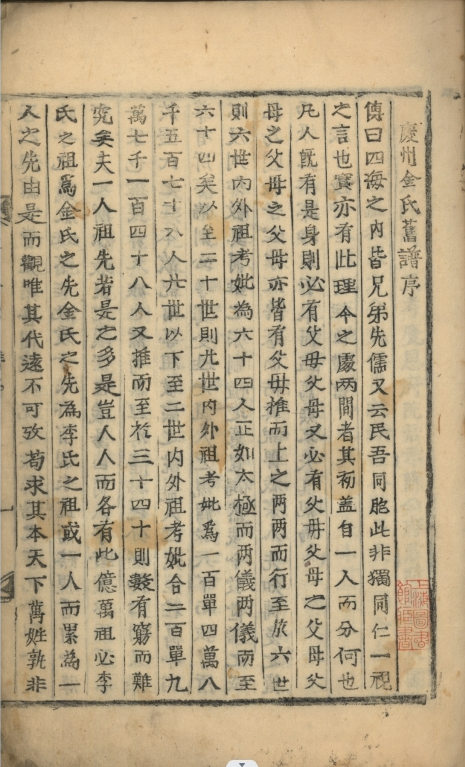 慶州金氏舊譜序
傳曰四海之內皆兄弟先儒又云民吾同胞此非獨同仁一視
之言也實亦有此理今之處兩間者其初盖自一人而分何也
凡人旣有是身則必有父母父母又必有父母父母之父母父
母之父母之父母亦皆有父母推而上之兩兩而行至於六世
則六世內外祖考妣為六十四人正如太極而兩儀兩儀而至
六十四矣以至二十世則卄世內外祖考妣爲一百單四萬八
千五百七十六人卄世以下至二世內外祖考妣合二百單九
萬七千一百四十八人又推而至於三十四十則數有窮而難
究矣夫一人祖先若是之多是豈人人而各有此億萬祖必李
氏之祖爲金氏之先金氏之先為李氏之祖或一人而累為一
人之先由是而觀唯其代遠不可攷苟求其本天下萬姓孰非
上海圖書
館藏書